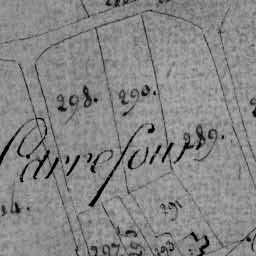 298. 290.
Carrefour
289.
291
297
293